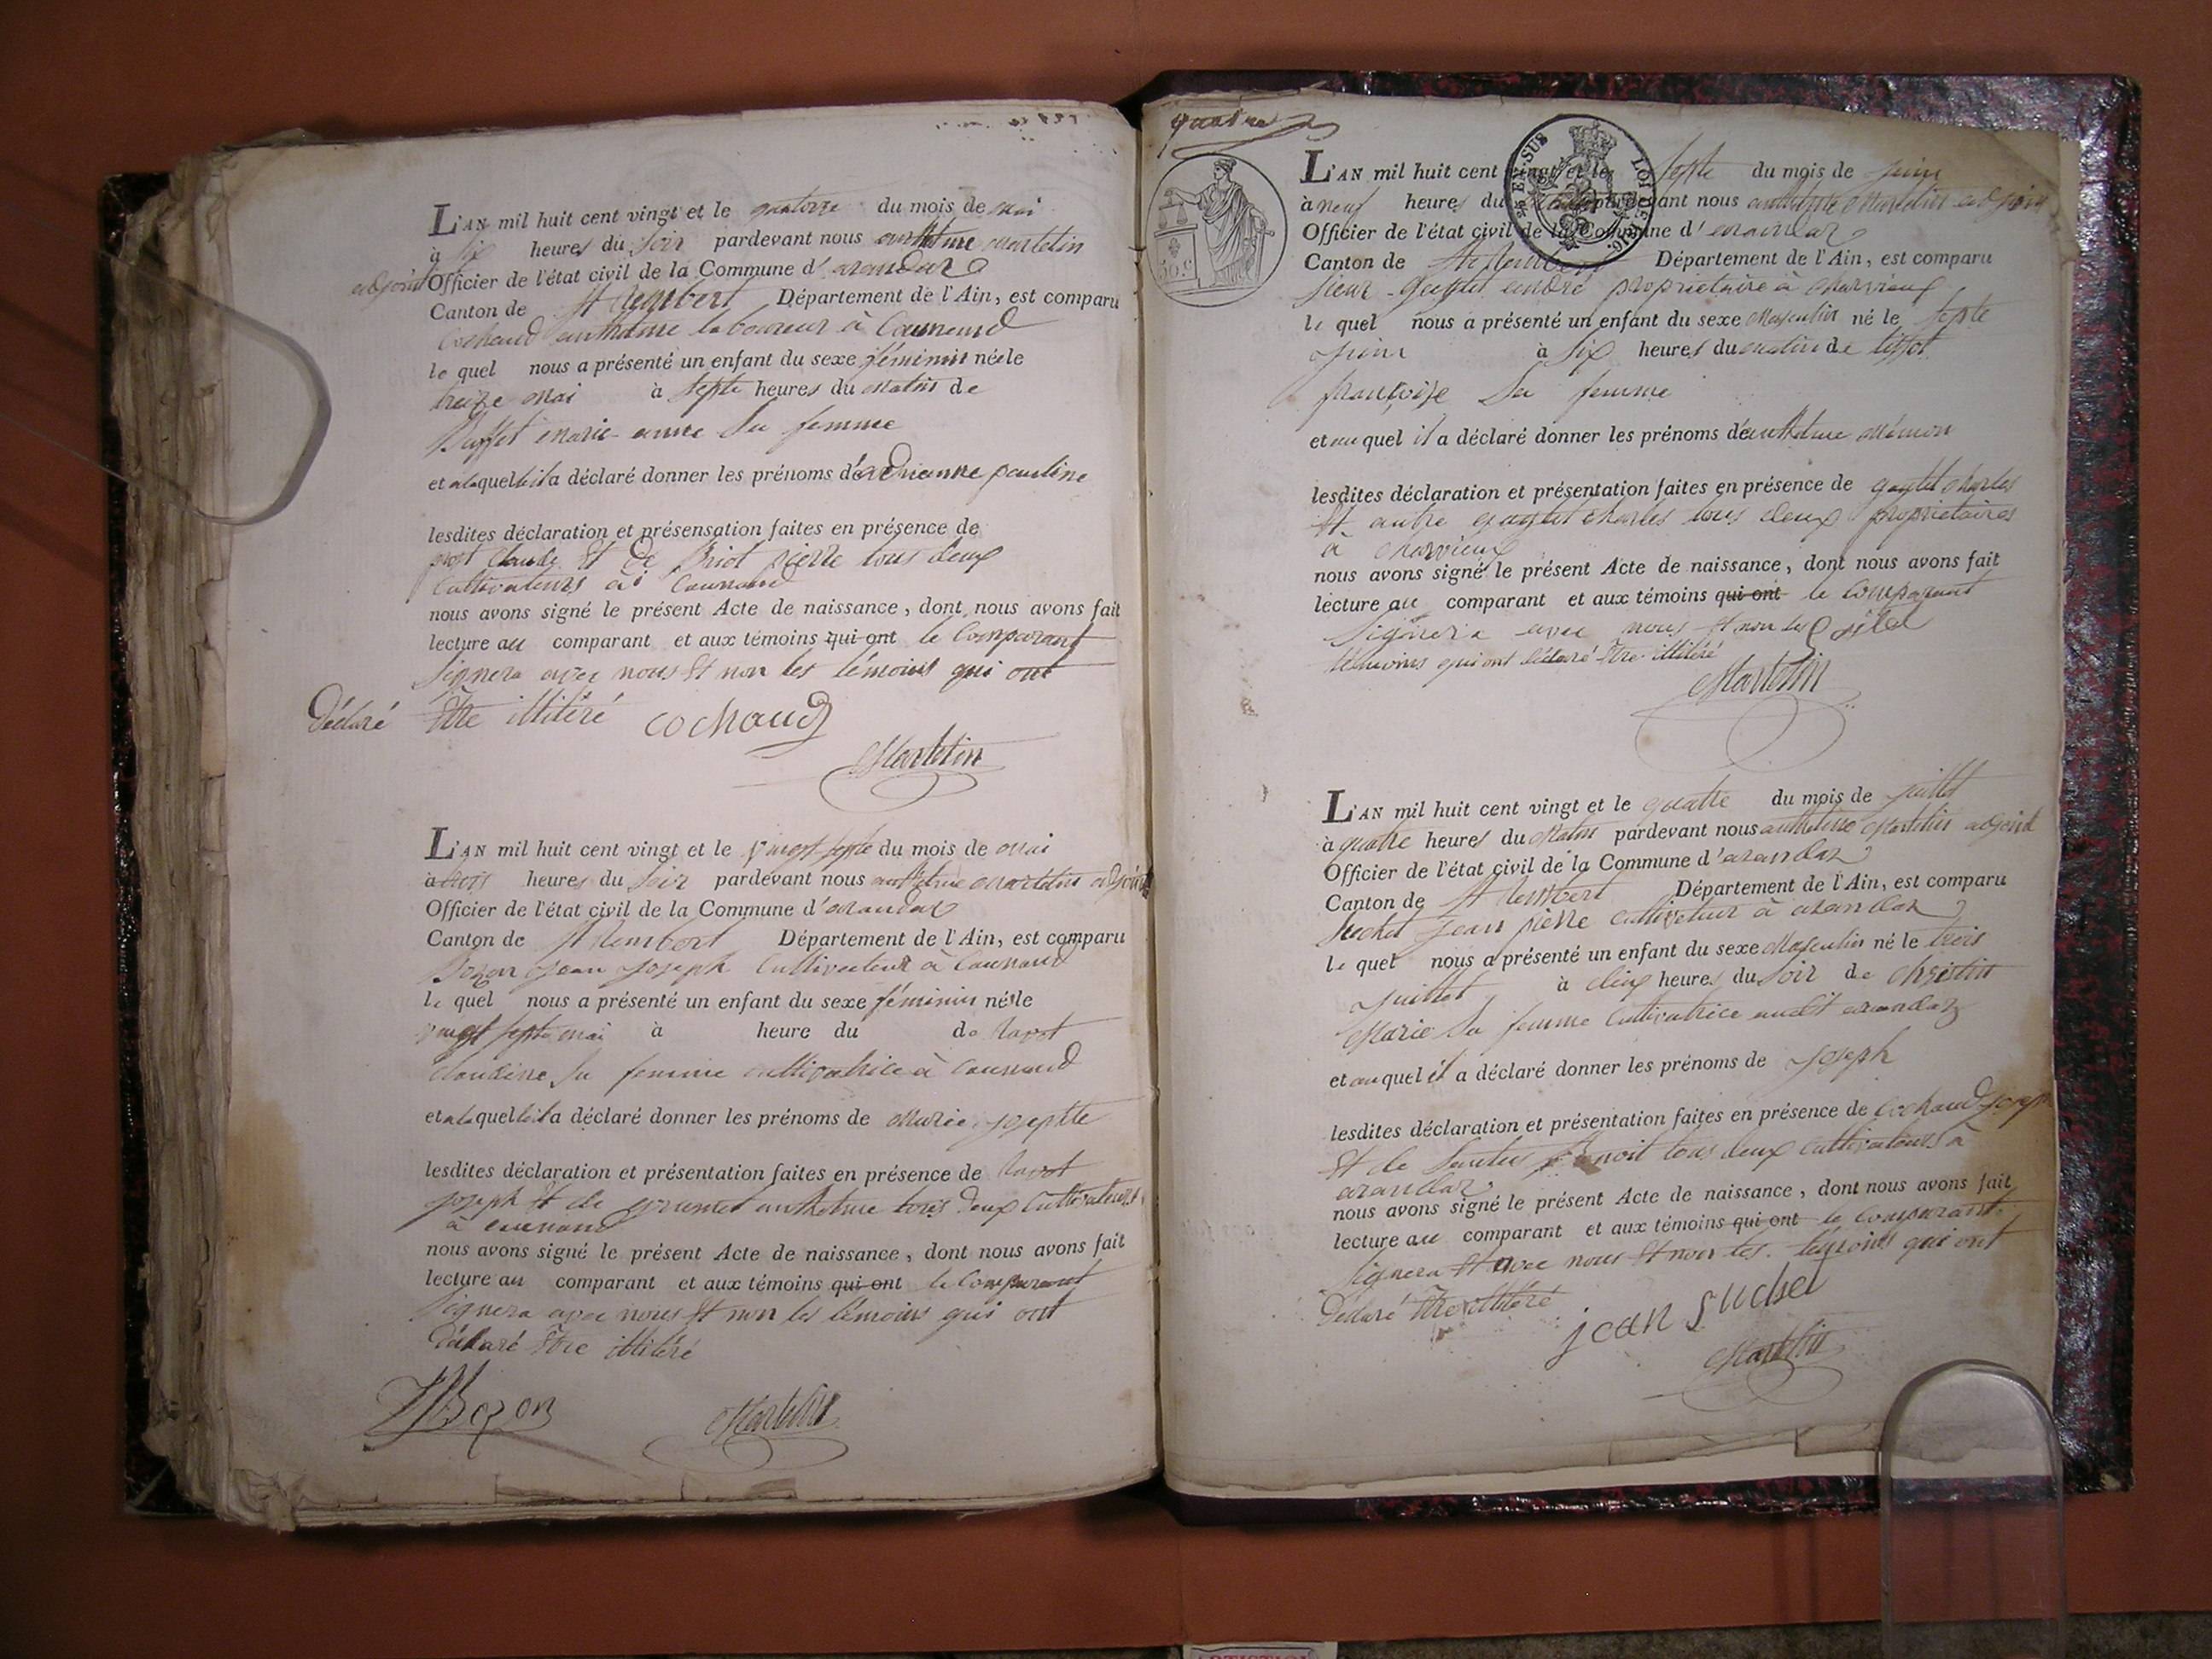 L'AN mil huit cent vingt et le quatorze du mois de mai
à six heures du soir pardevant nous anthelme martelin
adjoint Officier de l'état civil de la Commune d'arandaz
Canton de St Rembert Département de l'Ain, est comparu
Cochaud anthelme laboureur à
le quel nous a présenté un enfant du sexe féminin née le
treize mai à septe heures du matin de
Buffet marie anne sa femme
et a laquelle il a déclaré donner les prénoms d'adrianne pauline
lesdites déclaration et présensation faites en présence de
Claude et de pierre tous deux
cultivateurs à
nous avons signé le présent Acte de naissance, dont nous avons fait
lecture au comparant et aux témoins qui ont le comparant
signera avec nous et non les témoins qui ont
déclaré être illitéré cochaud
Martelin
L'AN mil huit cent vingt et le vingt septe du mois de mai
à heures du soir pardevant nous anthelme martelin adjoint
Officier de l'état civil de la Commune d'arandaz
Canton de St Rembert Département de l'Ain, est comparu
Bozon jean joseph Cultivateur à
le quel nous a présenté un enfant du sexe féminin née le
vingt septe mai à heure du de ravot
claudine sa femme cultivatrice à
et a laquelle il a déclaré donner les prénoms de marie josephte
lesdites déclaration et présentation faites en présence de ravot
joseph et de anthelme tous deux Cultivateurs
à
nous avons signé le présent Acte de naissance, dont nous avons fait
lecture au comparant et aux témoins qui ont le comparant
signera avec nous et non les témoins qui ont
déclaré être illitéré
JJBozon Martelin
quatre
50 C.
25 EN SUS LOI DE 1816.
L'AN mil huit cent vingt et le septe du mois de juin
à neuf heures du pardevant nous anthelme Martelin adjoint
Officier de l'état civil de la Commune d'arandaz
Canton de St Rembert Département de l'Ain, est comparu
sieur andré proprietaire à
le quel nous a présenté un enfant du sexe Masculin né le septe
juin à six heures du matin de
françoise sa femme
et au quel il a déclaré donner les prénoms d'anthelme
lesdites déclaration et présentation faites en présence de charles
et autre charles tous deux proprietaires
à
nous avons signé le présent Acte de naissance, dont nous avons fait
lecture au comparant et aux témoins qui ont le comparant
signera avec nous et non les
témoins qui ont déclaré être illitéré
Martelin
L'AN mil huit cent vingt et le quatre du mois de juillet
à quatre heures du Matin pardevant nous anthelme Martelin adjoint
Officier de l'état civil de la Commune d'arandaz
Canton de St Rembert Département de l'Ain, est comparu
Suchet jean pierre cultivateur à arandaz
le quel nous a présenté un enfant du sexe Masculin né le trois
juillet à deux heures du soir de christin
Marie sa femme Cultivatrice audit arandaz
et au quel il a déclaré donner les prénoms de joseph
lesdites déclaration et présentation faites en présence de Cochaud joseph
et de benoit tous deux cultivateurs à
arandaz
nous avons signé le présent Acte de naissance, dont nous avons fait
lecture au comparant et aux témoins qui ont le comparant
signera et avec nous et non les témoins qui ont
déclaré être illitéré jean suchet
Martelin